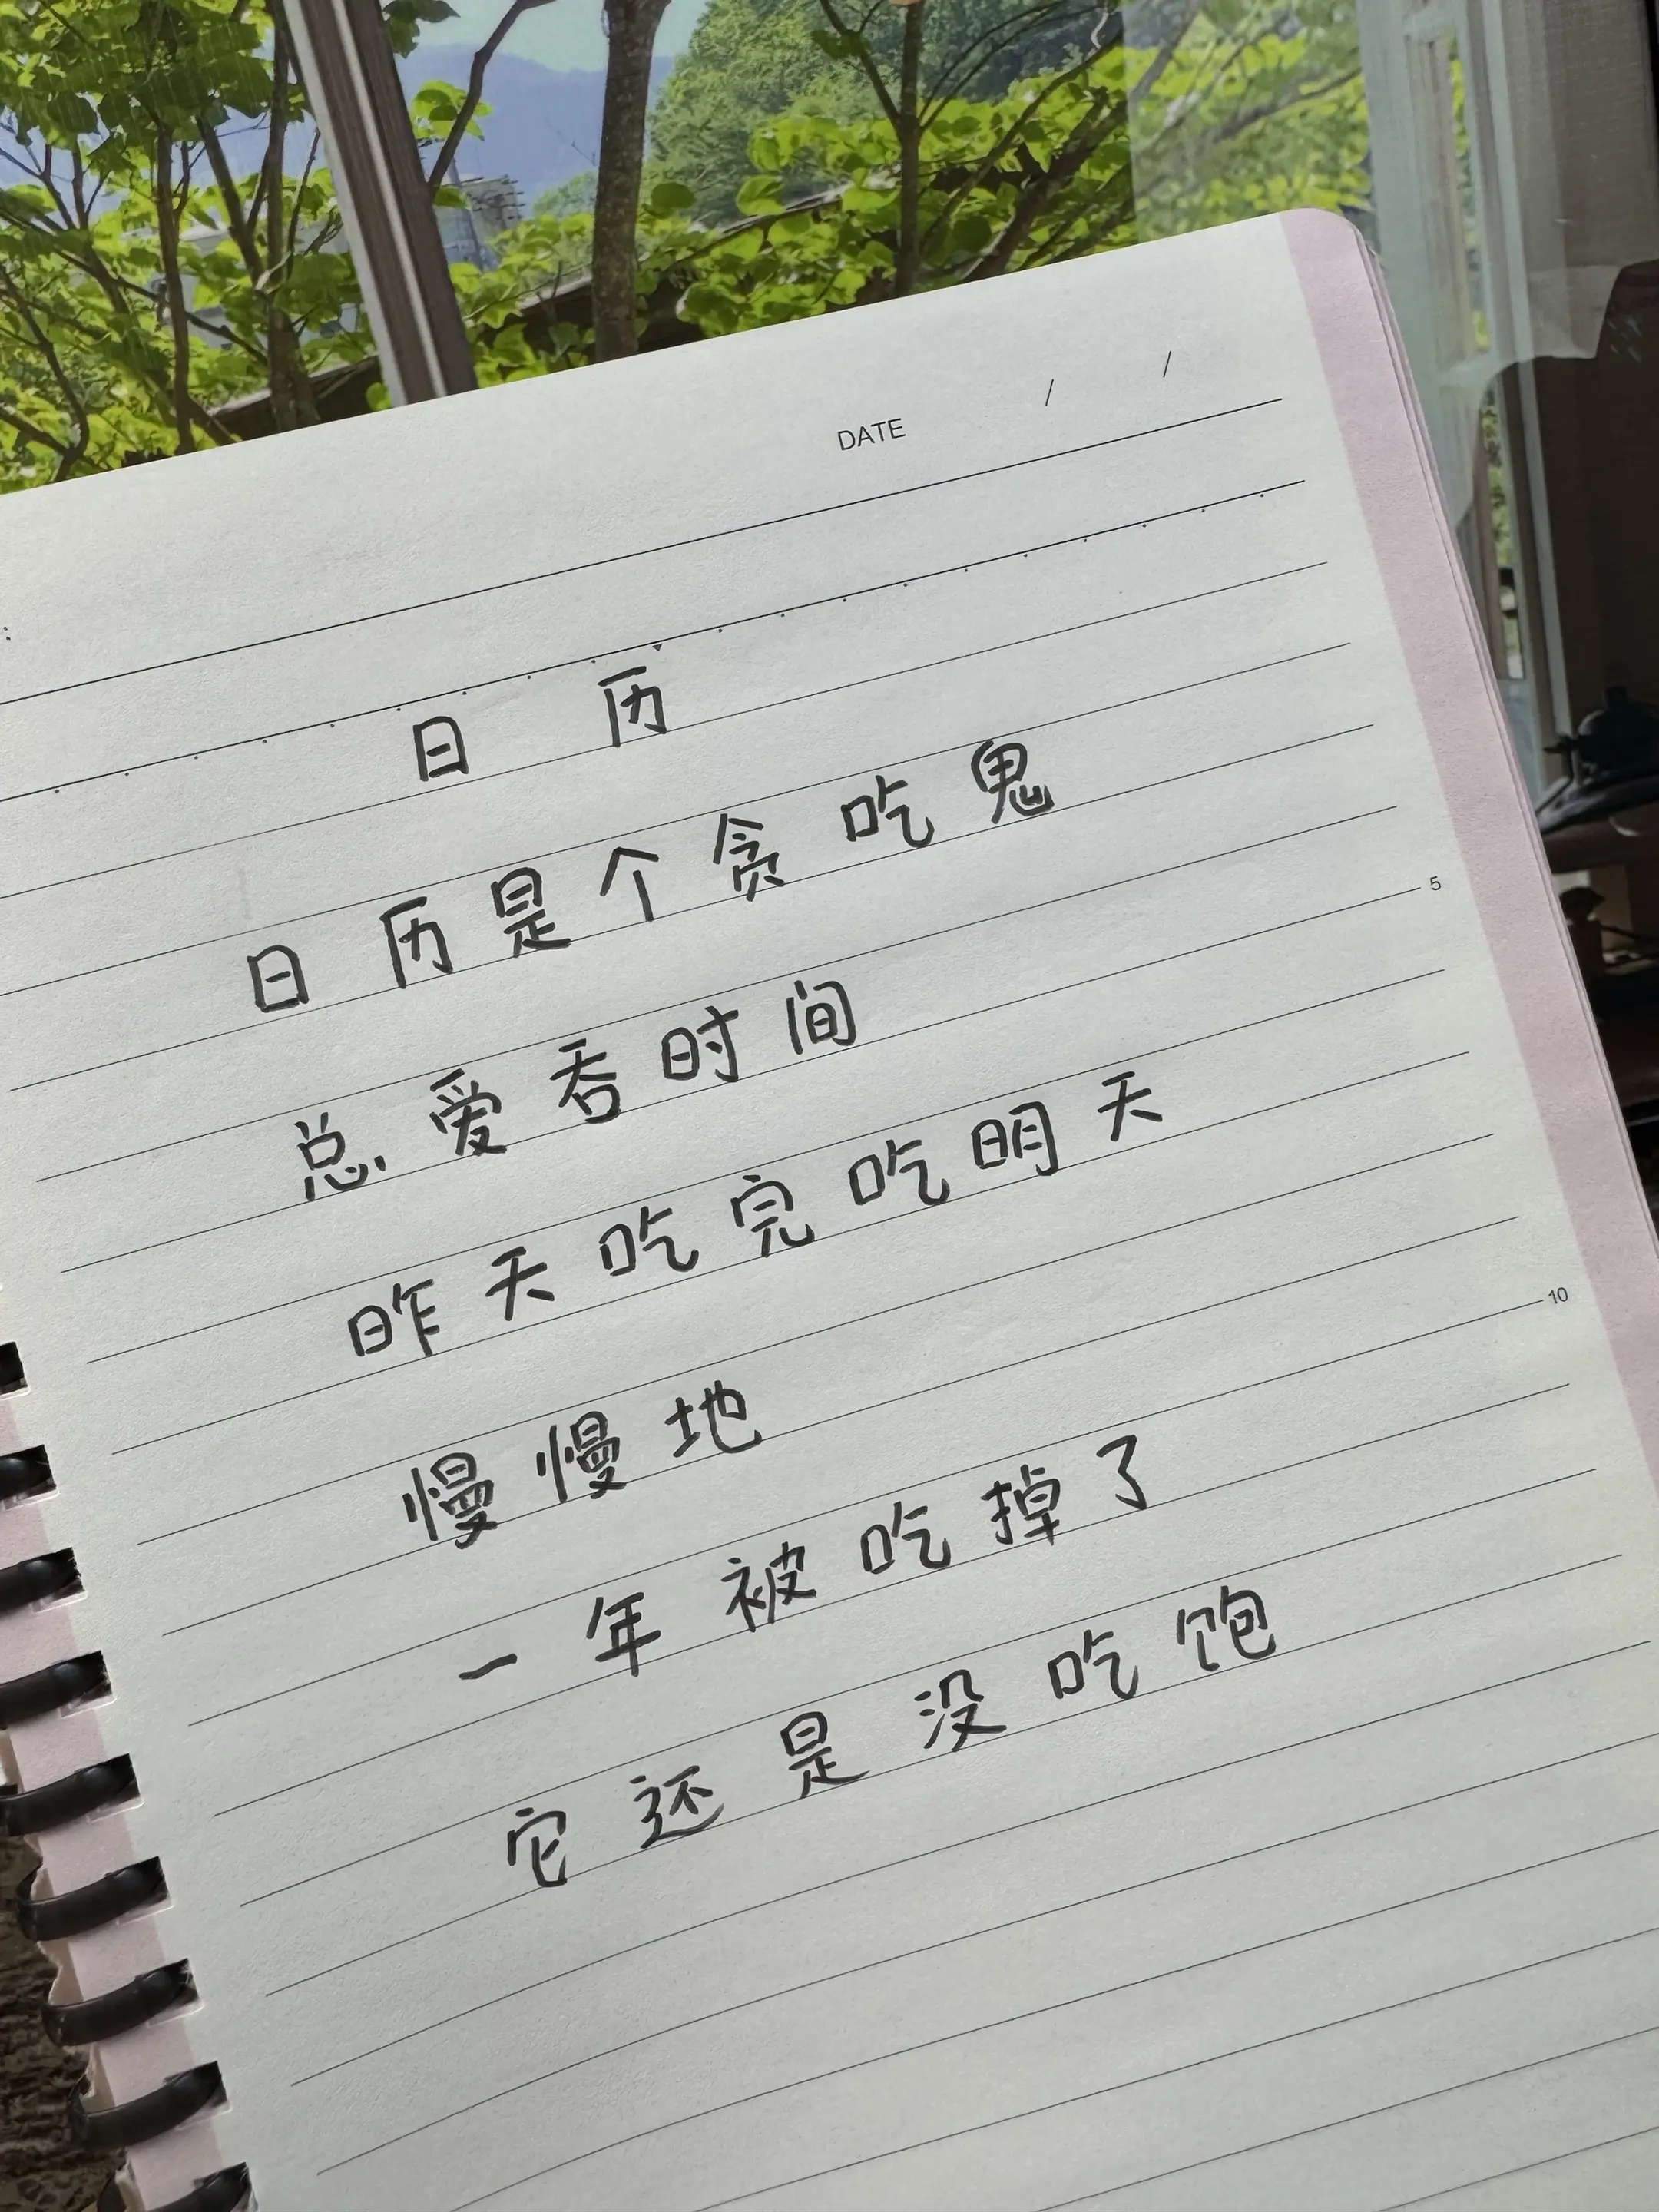 DATE / /
日历
日历是个贪吃鬼
总爱吞时间
昨天吃完吃明天
慢慢地
一年被吃掉了
它还是没吃饱
5
10